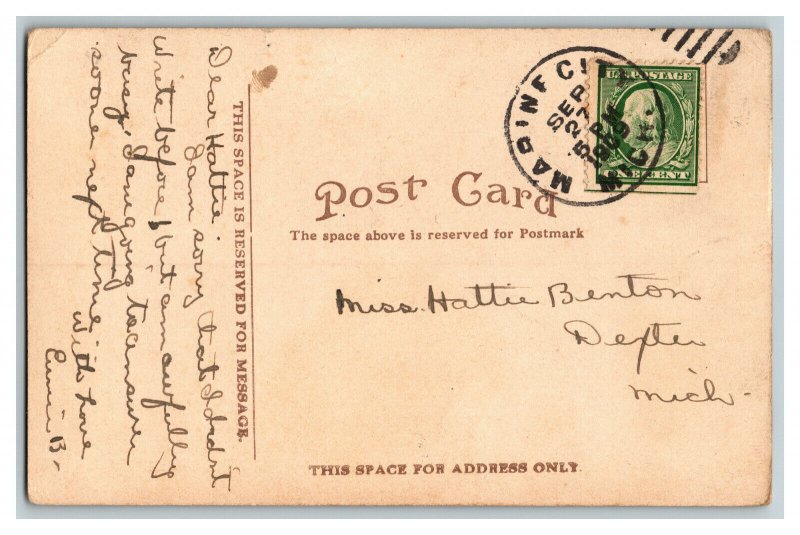 Dear Hattie.
I am sorry that I didnt
write before, but am awfully
busy. I am going to answer
sooner next time.
With Love
B.
THIS SPACE IS RESERVED FOR MESSAGE.
MARINE CITY
MICH.
SEP
27
5 PM
1909
U.S. POSTAGE
ONE CENT
Post Card
The space above is reserved for Postmark
Miss. Hattie Benton
Dexter
Mich-
THIS SPACE FOR ADDRESS ONLY.